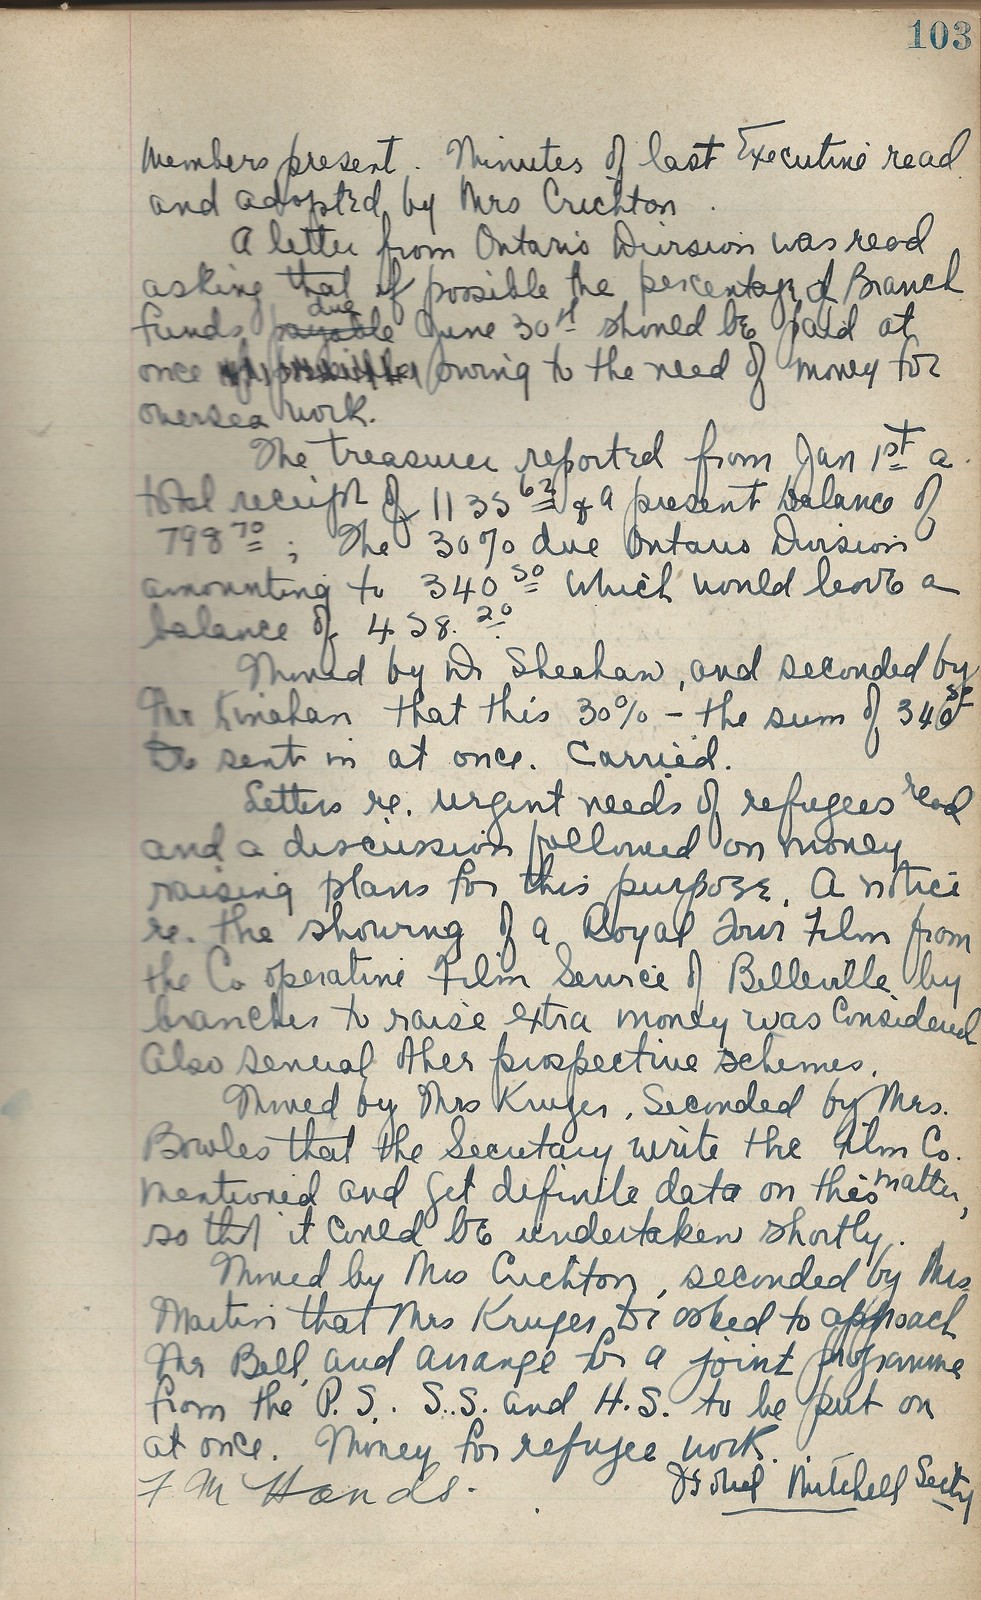 103
Members present. Minutes of last Executive read
and adopted by Mrs Crichton.
A letter from Ontario Division was read
asking that if possible the percentage of Branch
due
funds payable June 30th should be paid at
once owing to the need of money for
oversea work.
The treasurer reported from Jan 1st a
total receipt of 1135 62 & a present balance of
798 70 ; The 30% due Ontario Division
amounting to 340 50 which would leave a
balance of 458. 20
Moved by Dr Sheahan, and seconded by
Mr Kinahan that this 30% - the sum of 340 50
be sent in at once. Carried.
Letters re. urgent needs of refugees read
and a discussion followed on money
raising plans for this purpose. A notice
re. the showing of a Royal Tour Film from
the Co operative Film Service of Belleville by
branches to raise extra money was considered
Also several other prospective schemes.
Moved by Mrs Kruger, Seconded by Mrs.
Bowles that the Secretary write the Film Co.
mentioned and get definite data on this matter,
so that it could be undertaken shortly.
Moved by Mrs Crichton, seconded by Mrs
Martin that Mrs Kruger be asked to approach
Mr Bell, and arrange for a joint programme
from the P. S., S.S. and H.S. to be put on
at once. Money for refugee work.
F M Hands. Mitchell Secty